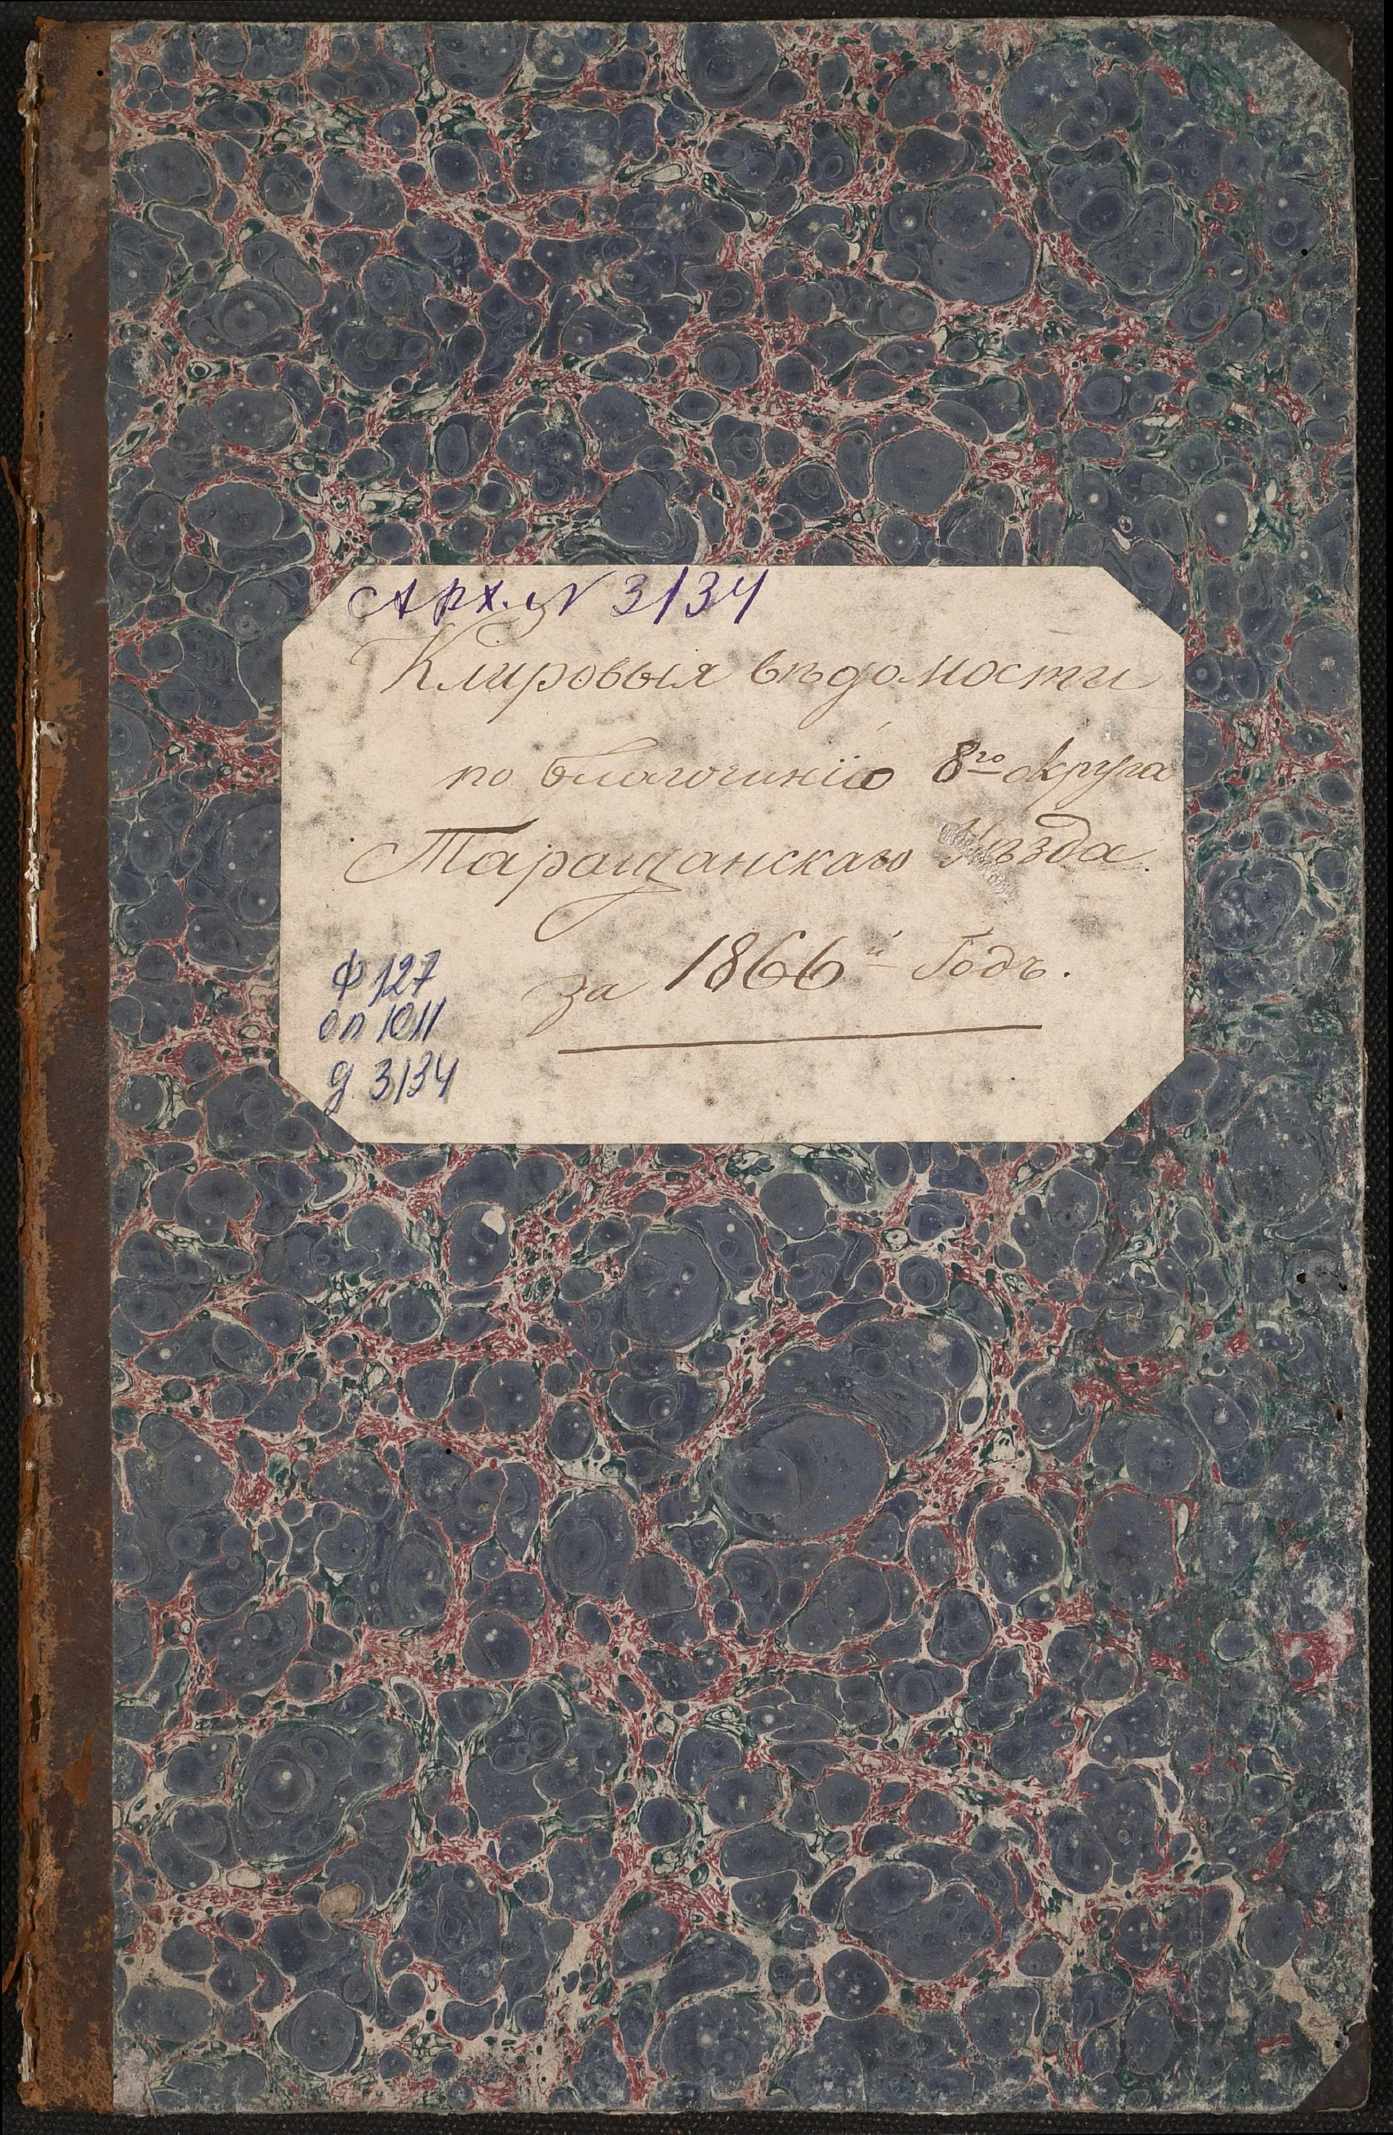 Арх. № 3134
Клировыя вѣдомости
по благочинію 8го округа
Таращанскаго Уѣзда.
за 1866й Годъ.
ф 127
оп 1011
д. 3134